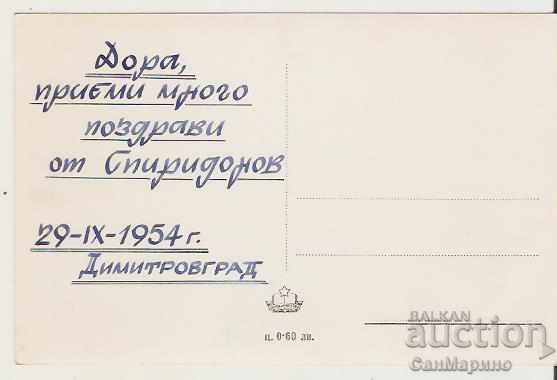 Дора,
приеми много
поздрави
от Спиридонов
29-IX-1954 г.
Димитровград
ц. 0·60 лв.
BALKAN
auction
СанМарино